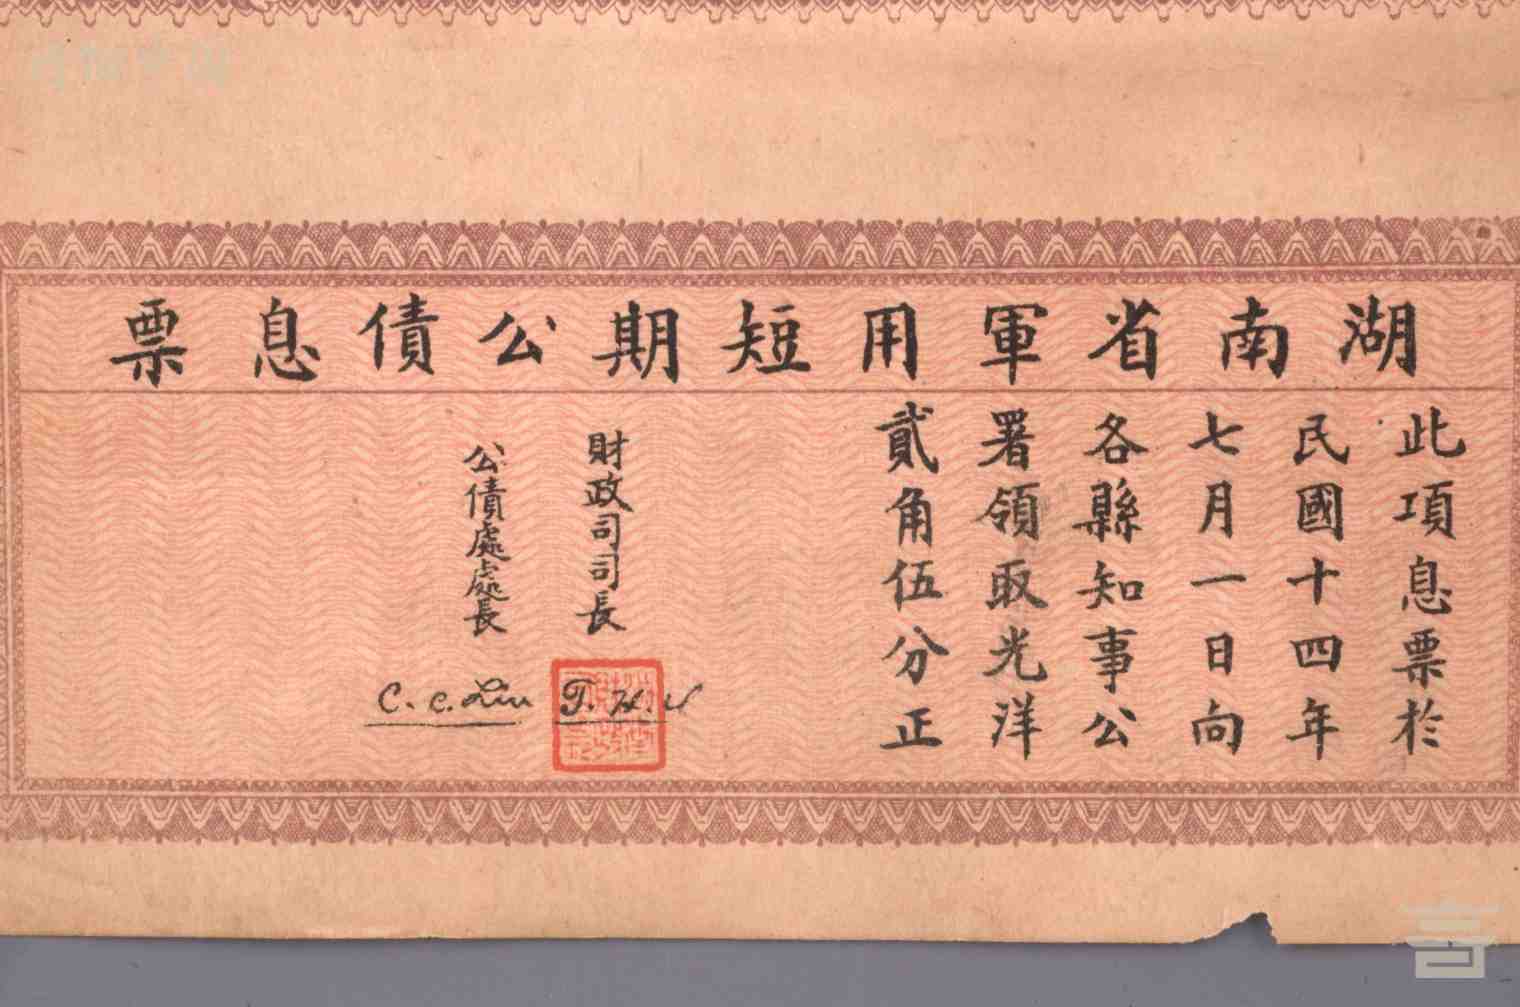 湖南省軍用短期公債息票
此項息票於
民國十四年
七月一日向
各縣知事公
署領取光洋
貳角伍分正
財政司司長
公債處處長
C. C. Liu